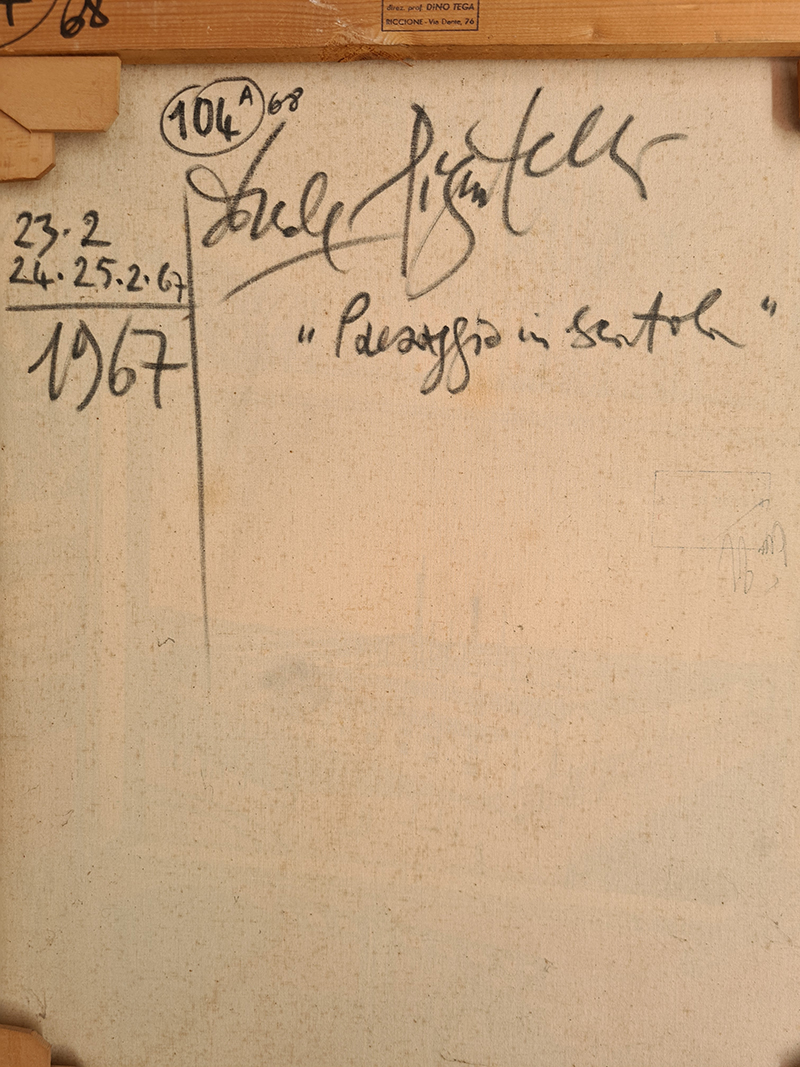 68
direz. prof. DINO TEGA
RICCIONE - Via Dante, 76
104 A 68
Ercole Pignatelli
23.2
24.25.2.67
1967
"Paesaggio in scatola"